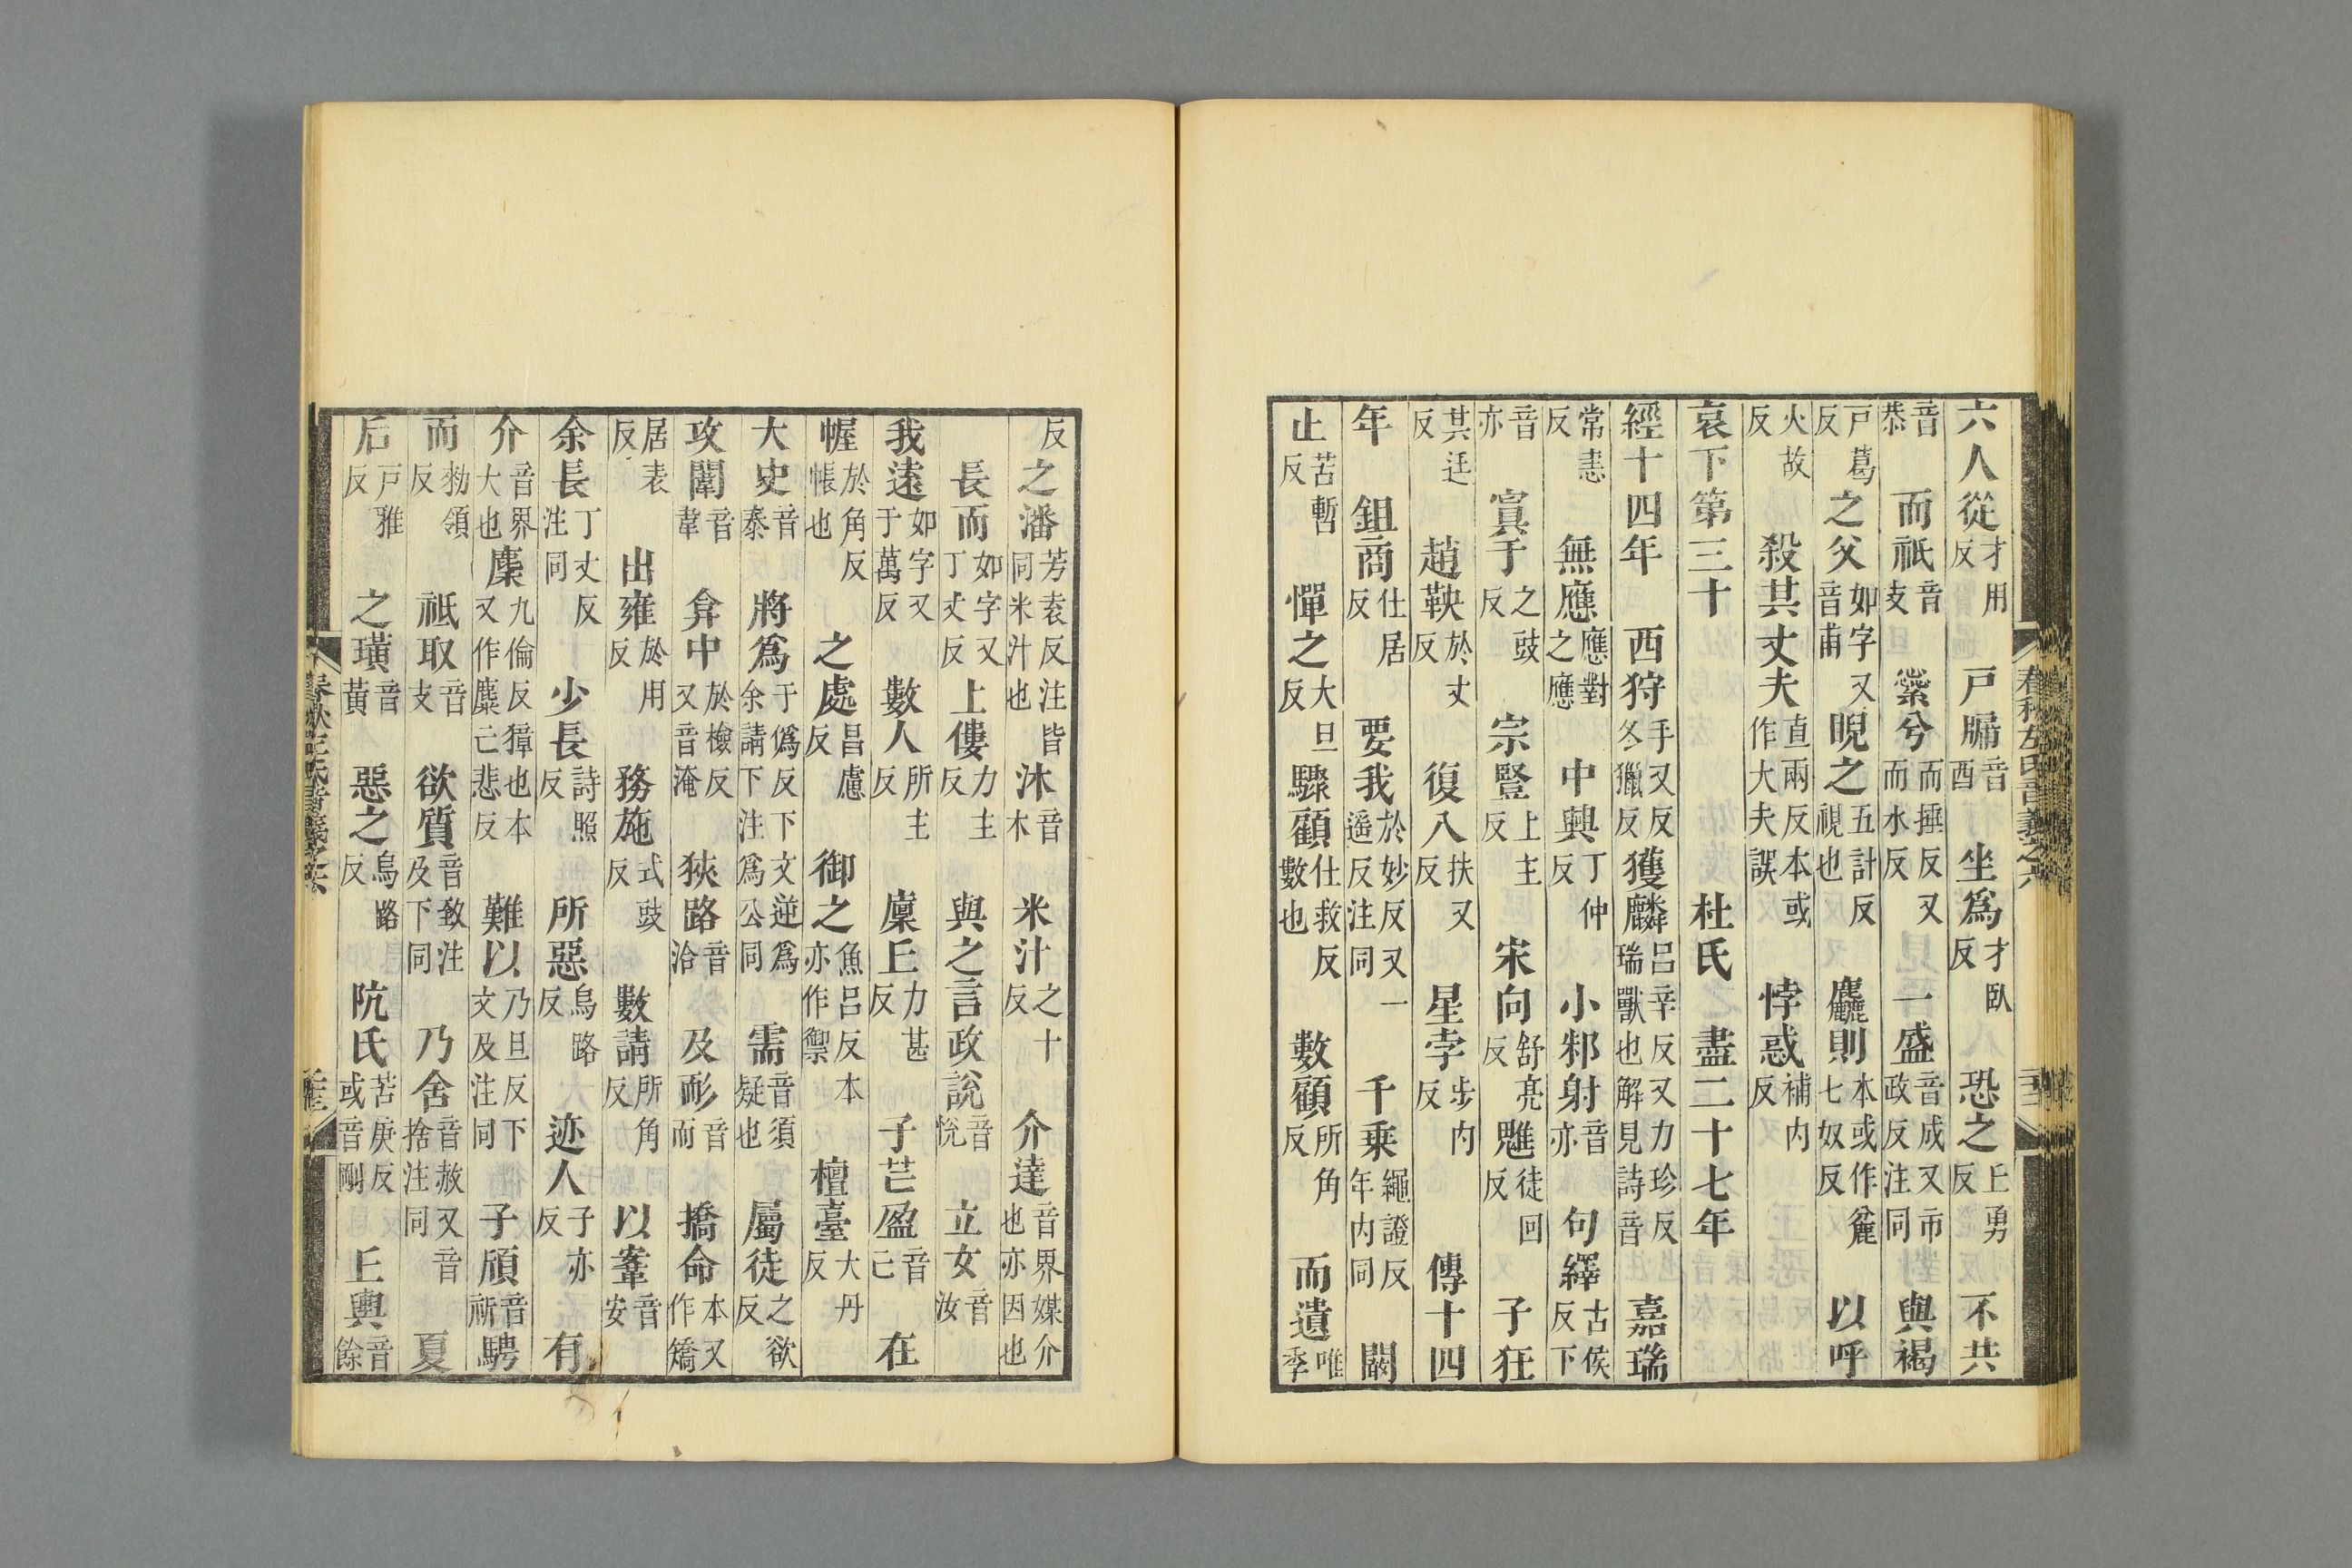 春秋左氏音義之六
六人從才用反 戸牖音酉 坐爲才臥反 恐之丘勇反 不共
音恭 而祇音支 繠兮而捶反又而水反 一盛音成又市政反注同 與褐
戸葛反 之父如字又音甫 睨之五計反視也 麤則本或作麄七奴反 以呼
火故反 殺其丈夫直兩反本或作大夫誤 悖惑補内反
哀下第三十 杜氏 盡二十七年
經十四年 西狩手又反冬獵反 獲麟呂辛反又力珍反瑞獸也解見詩音 嘉瑞
常恚反 無應應對之應 中興丁仲反 小邾射音亦 句繹古侯反下
音亦 寘于之豉反 宗豎上主反 宋向舒亮反 魋徒回反 子狂
其廷反 趙鞅於丈反 復入扶又反 星孛步内反 傳十四
年 鉏商仕居反 要我於妙反又一遥反注同 千乘繩證反年内同 闞
止苦暫反 憚之大旦反 驟顧仕救反數也 數顧所角反 而遺唯季
反 之潘芳袁反注皆同米汁也 沐音木 米汁之十反 介達音界媒介也亦因也
長而如字又丁丈反 上僂力主反 與之言政說音悅 立女音汝
我遠如字又于萬反 數人所主反 廩丘力甚反 子芒盈音亡 在
幄於角反帳也 之處昌慮反 御之魚呂反本亦作禦 檀臺大丹反
大史音泰 將爲于僞反下文逆爲余請下注爲公同 需音須疑也 屬徒之欲反
攻闈音韋 弇中於檢反又音淹 狹路音洽 及耏音而 撟命本又作矯
居表反 出雍於用反 務施式豉反 數請所角反 以鞌音安
余長丁丈反注同 少長詩照反 所惡烏路反 迹人子亦反 有
介音界大也 麇九倫反獐也本又作麋亡悲反 難以乃旦反下文及注同 子頎音祈 騁
而勑領反 祇取音支 欲質音致注及下同 乃舍音赦又音捨注同 夏
后戸雅反 之璜音黄 惡之烏路反 阬氏苦庚反或音剛 丘輿音餘
春秋左氏音義之六